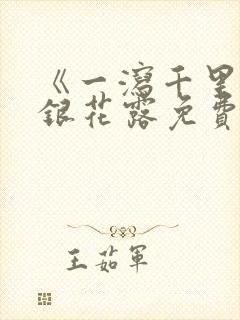 《一瀉千里
銀花露免費
王茹軍